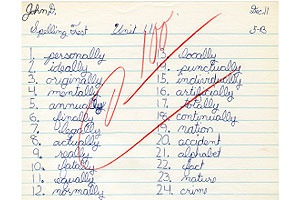 John D.
Dec. 11
Spelling Test Unit 11
5-B
1. personally
2. ideally
3. originally
4. mentally
5. annually
6. finally
7. legally
8. actually
9. really
10. fatally
11. equally
12. normally
13. locally
14. punctually
15. individually
16. artificially
17. totally
18. continually
19. nation
20. accident
21. alphabet
22. fact
23. mature
24. crime